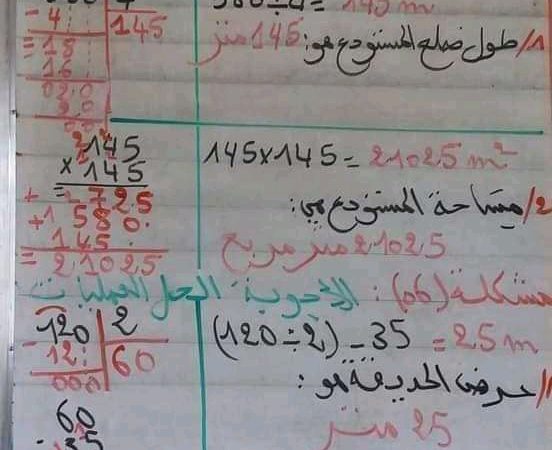 580 ÷ 4 = 145 m
1/ طول ضلع المستودع هو: 145 متر
- 4
145
= 18
16
020
20
00
145 × 145 = 21025 m²
145
× 145
= 725
+ 580.
+ 145..
= 21025
2/ مساحة المستودع هي:
21025 متر مربع
مشكلة (06): الأجوبة الحل العمليات
(120 ÷ 2) - 35 = 25 m
1/ عرض الحديقة هو:
25 متر
120 2
- 12 60
000
60
- 35